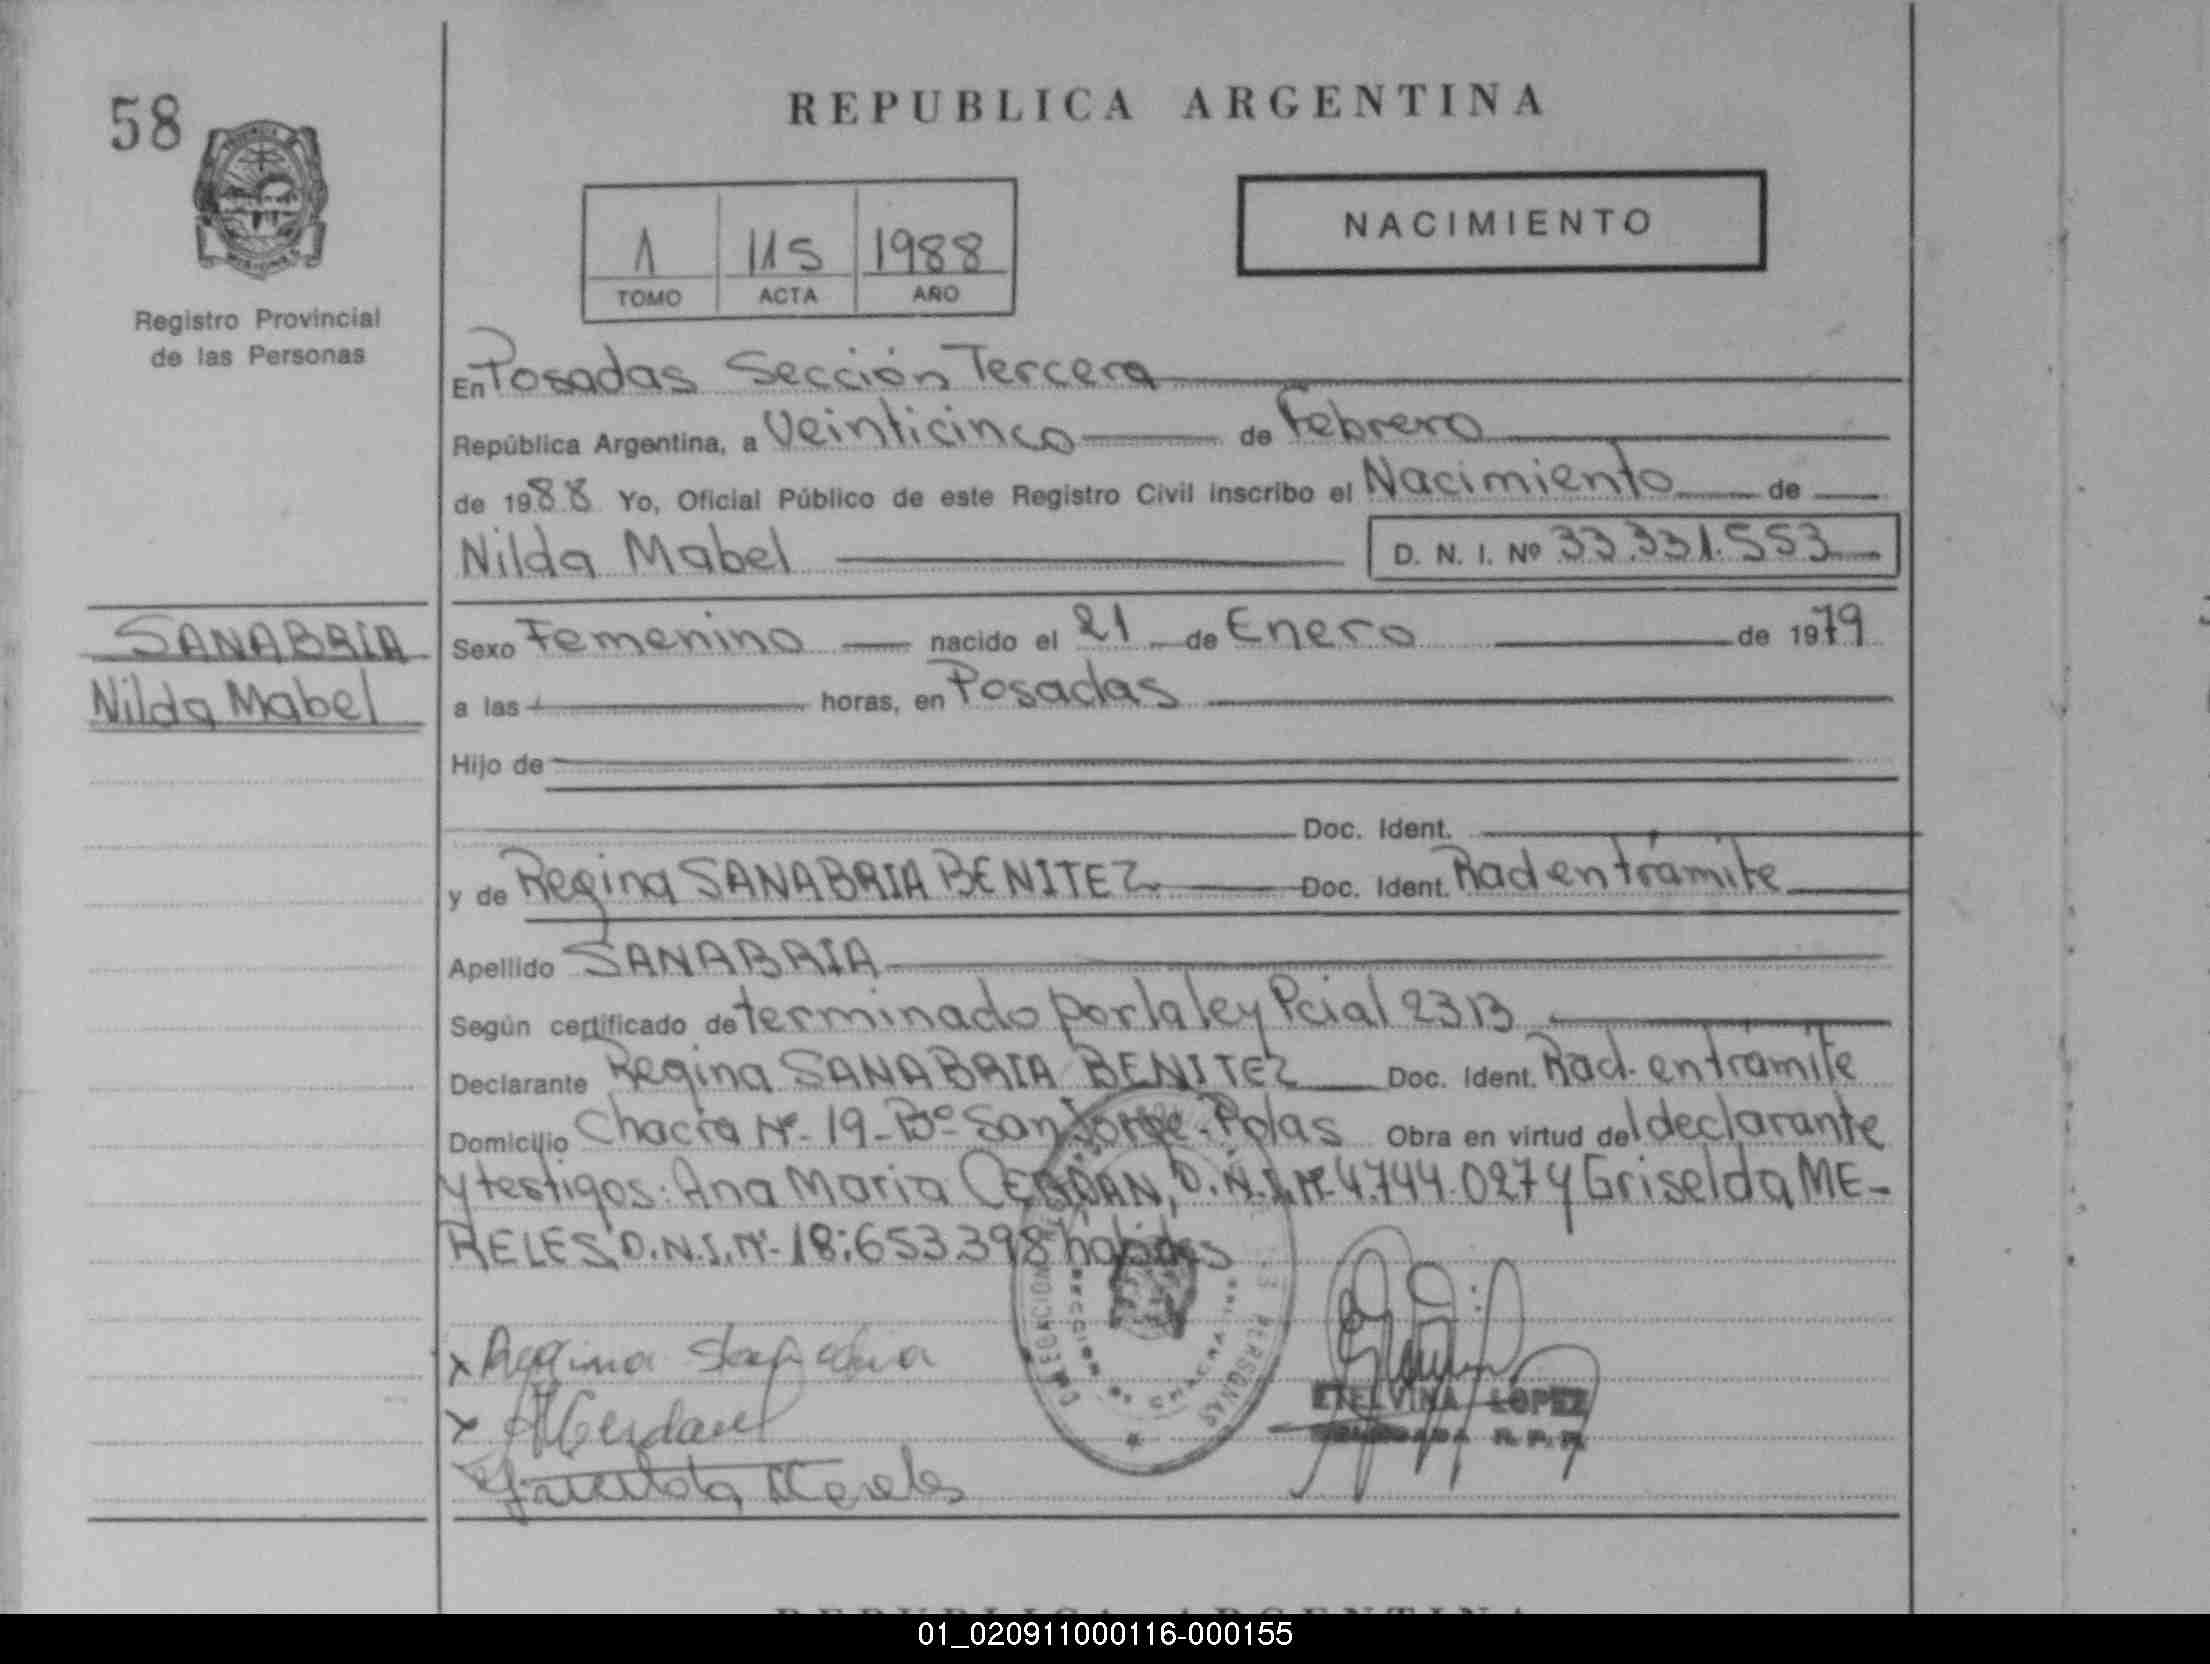 58
REPUBLICA ARGENTINA
NACIMIENTO
1 115 1988
TOMO ACTA AÑO
Registro Provincial
de las Personas
En Posadas Sección Tercera
República Argentina, a Veinticinco de Febrero
de 1988 Yo, Oficial Público de este Registro Civil inscribo el Nacimiento de
Nilda Mabel D. N. I. Nº 33.331.553
SANABRIA
Nilda Mabel
Sexo Femenino nacido el 21 de Enero de 1979
a las horas, en Posadas
Hijo de
Doc. Ident.
y de Regina SANABRIA BENITEZ Doc. Ident. Rad en trámite
Apellido SANABRIA
Según certificado determinado por la ley Pcial 2313
Declarante Regina SANABRIA BENITEZ Doc. Ident. Rad. en trámite
Domicilio Chacra Nº 19 - Bº San Jorge - Pdas Obra en virtud del declarante
y testigos: Ana Maria CERDAN, D.N.I. Nº 4.744.027 y Griselda ME-
RELES D.N.I. Nº 18.653.398 hábiles
x Regina
x ACerdan
Griselda Mereles
ETELVINA LOPEZ
DELEGADA R. P. P.
PERSONAS
01_020911000116-000155